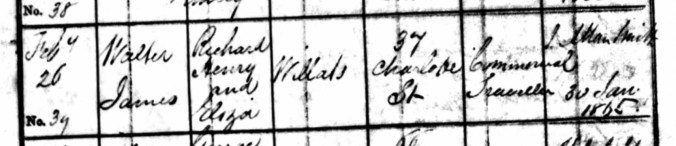 No. 38
Feby 26
No. 39
Walter James
Richard Henry and Eliza
Willats
37 Charlotte St
Commercial Traveller
30 Jan 1865